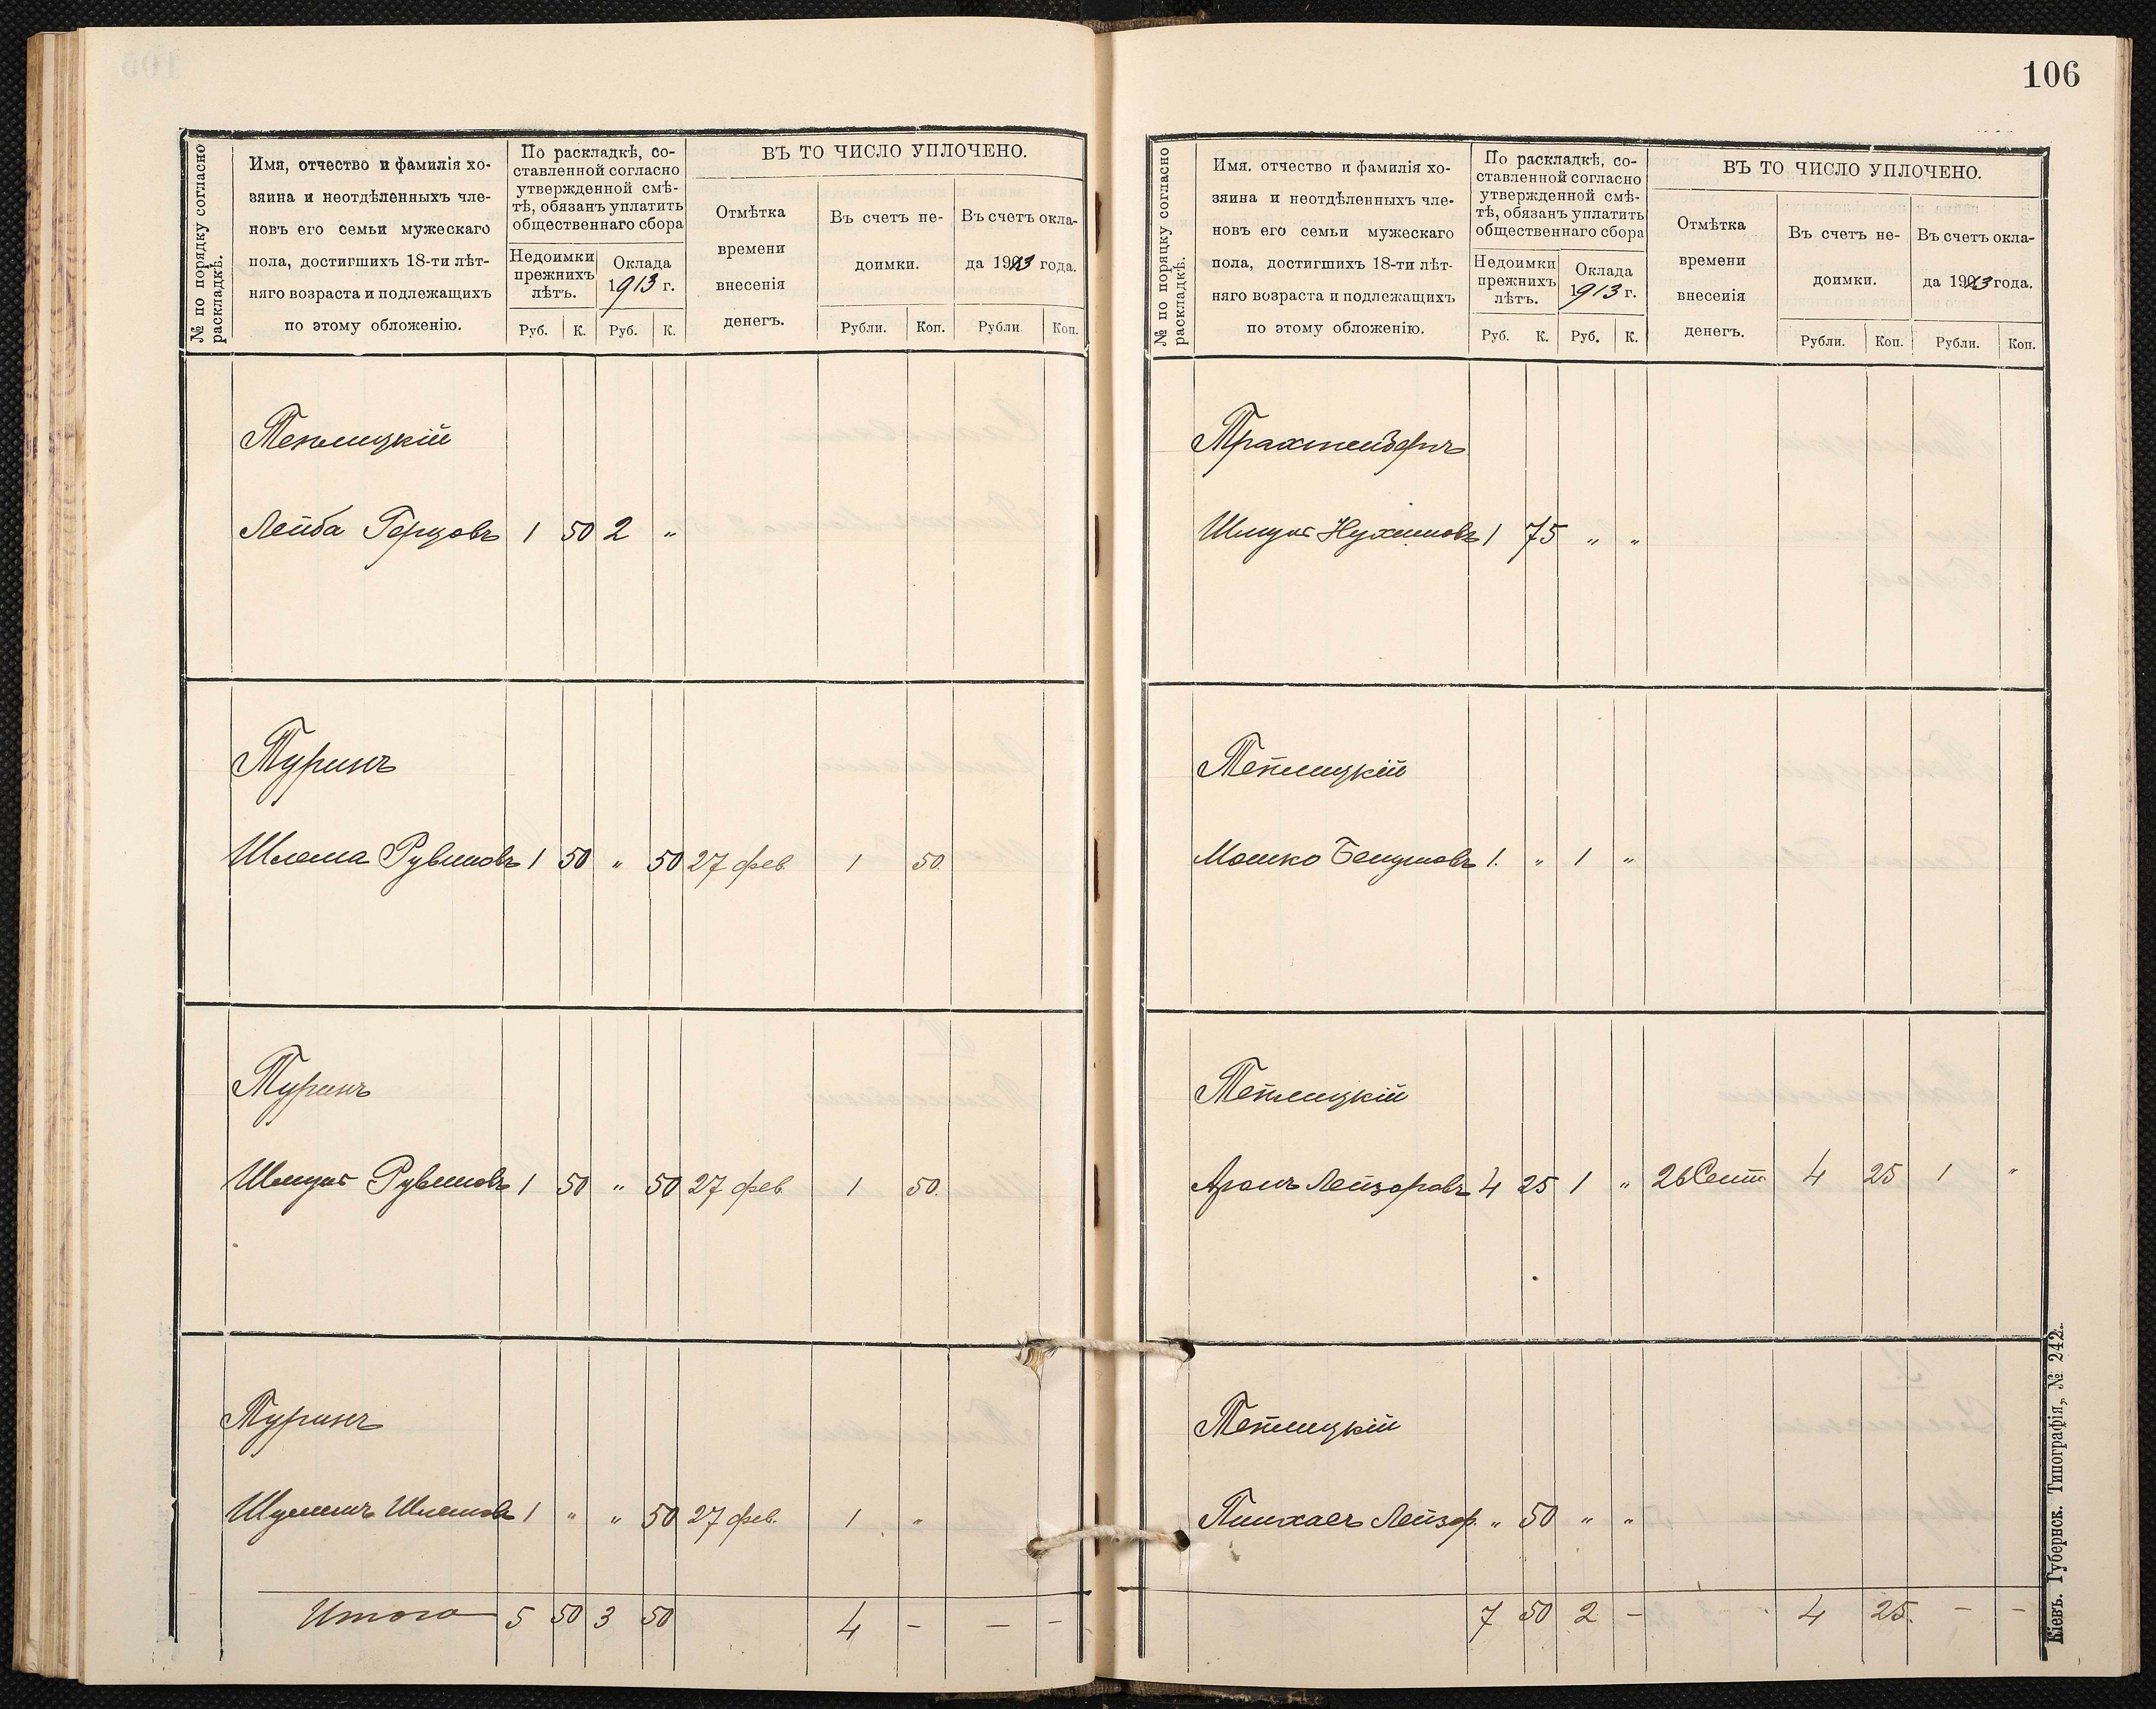 № по порядку согласно
раскладкѣ.
Имя, отчество и фамилія хо-
зяина и неотдѣленныхъ чле-
новъ его семьи мужескаго
пола, достигшихъ 18-ти лѣт-
няго возраста и подлежащихъ
по этому обложенію.
По раскладкѣ, со-
ставленной согласно
утвержденной смѣ-
тѣ, обязанъ уплатить
общественнаго сбора
Недоимки
прежнихъ
лѣтъ.
Оклада
1913 г.
Руб. К. Руб. К.
ВЪ ТО ЧИСЛО УПЛОЧЕНО.
Отмѣтка
времени
внесенія
денегъ.
Въ счетъ не-
доимки.
Въ счетъ окла-
да 1913 года.
Рубли. Коп. Рубли. Коп.
Теплицкій
Лейба Герцовъ 1 50 2 „
Туринъ
Шлема Рувиновъ 1 50 „ 50 27 фев. 1 50.
Туринъ
Шмуль Рувиновъ 1 50 „ 50 27 фев. 1 50.
Туринъ
Шлемовъ 1 „ „ 50 27 фев. 1 „
Итого 5 50 3 50 4 – – –
106
№ по порядку согласно
раскладкѣ.
Имя, отчество и фамилія хо-
зяина и неотдѣленныхъ чле-
новъ его семьи мужескаго
пола, достигшихъ 18-ти лѣт-
няго возраста и подлежащихъ
по этому обложенію.
По раскладкѣ, со-
ставленной согласно
утвержденной смѣ-
тѣ, обязанъ уплатить
общественнаго сбора
Недоимки
прежнихъ
лѣтъ.
Оклада
1913 г.
Руб. К. Руб. К.
ВЪ ТО ЧИСЛО УПЛОЧЕНО.
Отмѣтка
времени
внесенія
денегъ.
Въ счетъ не-
доимки.
Въ счетъ окла-
да 1913 года.
Рубли. Коп. Рубли. Коп.
Трахтенбергъ
Шмуль Нухимовъ 1 75 „ „
Теплицкій
Мошко 1. „ 1 „
Теплицкій
Аронъ Лейзоровъ 4 25 1 „ 26 Сент 4 25 1 „
Теплицкій
Пинхасъ Лейзор. „ 50 „ „
7 50 2 – 4 25. – –
Кіевъ. Губернск. Типографія, № 242.